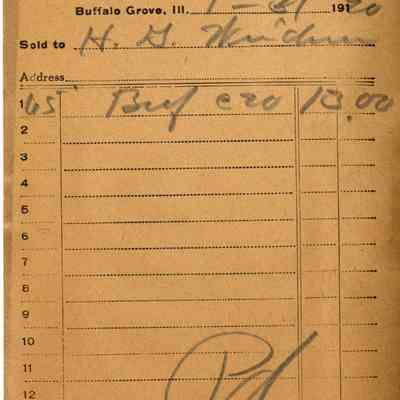 Buffalo Grove, Ill. 1-31 1920
Sold to H. G.
Address
1 65 Beef c20 13.00
2
3
4
5
6
7
8
9
10
11
12
Pd